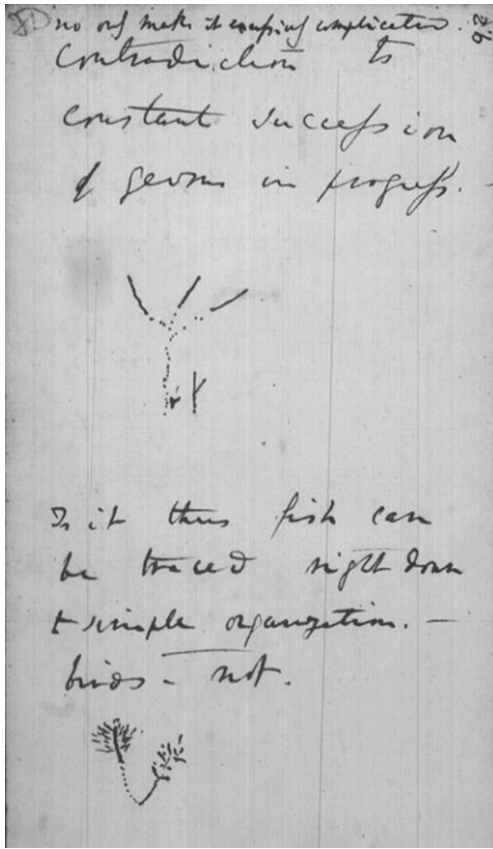 no only makes it excessively complicated. 26
contradiction to
constant succession
of germs in progress. —
Is it thus fish can
be traced right down
to simple organization. —
birds – not.